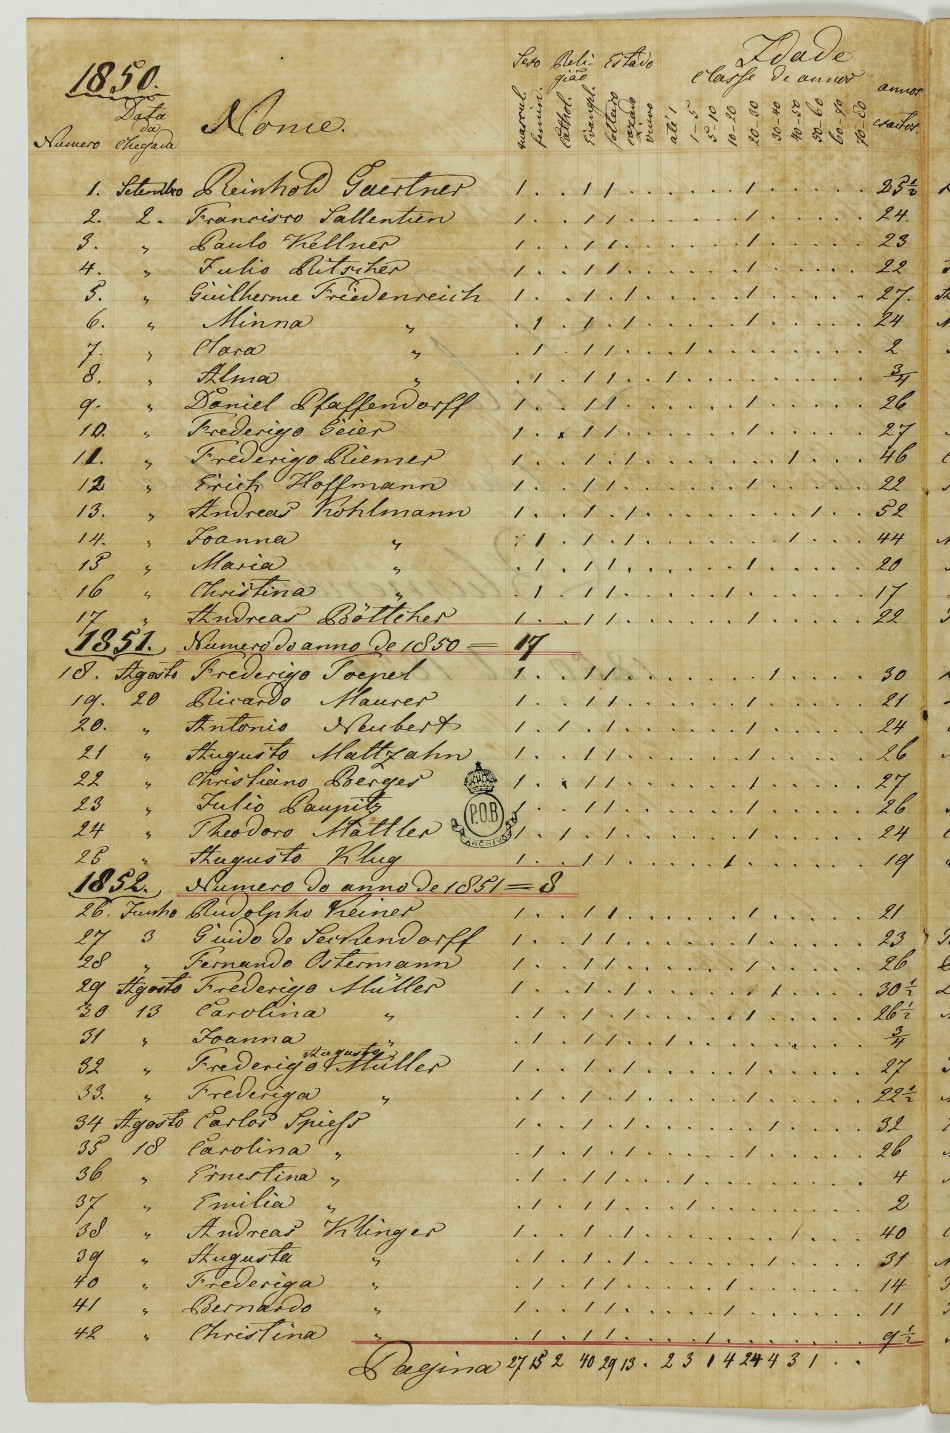 1850.
Sexo Religião Estado Idade
Classe de annos annos exactos
Numero Data da Chegada Nome. mascul. femin. Cathol. Evangel. solteiro casado viuvo até 1 1-5 5-10 10-20 20-30 30-40 40-50 50-60 60-70 70-80
1. Setembro Reinhold Gaertner 1 . . 1 1 . . . . . . 1 . . . . . 25 1/2
2. 2. Francisco Sallentien 1 . . 1 1 . . . . . . 1 . . . . . 24.
3. " Paulo Kellner 1 . . 1 1 . . . . . . 1 . . . . . 23
4. " Julio Ritscher 1 . . 1 1 . . . . . . 1 . . . . . 22
5. " Guilherme Friedenreich 1 . . 1 . 1 . . . . . 1 . . . . . 27.
6. " Minna " . 1 . 1 . 1 . . . . . 1 . . . . . 24
7. " Clara " . 1 . 1 1 . . . 1 . . . . . . . . 2
8. " Alma " . 1 . 1 1 . . 1 . . . . . . . . . 3/4
9. " Daniel Pfaffendorff 1 . . 1 1 . . . . . . 1 . . . . . 26
10. " Frederigo Geier 1 . . 1 1 . . . . . . 1 . . . . . 27
11. " Frederigo Riemer 1 . . 1 . 1 . . . . . . . 1 . . . 46
12 " Erich Hoffmann 1 . . 1 1 . . . . . . 1 . . . . . 22
13. " Andreas Kohlmann 1 . . 1 . 1 . . . . . . . . 1 . . 52
14. " Joanna " . 1 . 1 . 1 . . . . . . . 1 . . . 44
15 " Maria " . 1 . 1 1 . . . . . . 1 . . . . . 20
16 " Christina " . 1 . 1 1 . . . . . 1 . . . . . . 17
17 " Andreas Böttcher 1 . . 1 1 . . . . . . 1 . . . . . 22
1851. Numero do anno de 1850 = 17
18. Agosto Frederigo Poepel 1 . . 1 1 . . . . . . . 1 . . . . 30
19. 20 Ricardo Maurer 1 . . 1 1 . . . . . . 1 . . . . . 21
20. " Antonio Neubert 1 . 1 . 1 . . . . . . 1 . . . . . 24
21 " Augusto Maltzahn 1 . . 1 1 . . . . . . 1 . . . . . 26
22 " Christiano Berger 1 . . 1 1 . . . . . . 1 . . . . . 27
23 " Julio Baupitz 1 . . 1 1 . . . . . . 1 . . . . . 26
P.O.B
24 " Theodoro Mattler 1 . 1 . 1 . . . . . . 1 . . . . . 24
ARCHIVO
25 " Augusto Klug 1 . . 1 1 . . . . . 1 . . . . . . 19
1852. Numero do anno de 1851 = 8
26. Junho Rudolpho Keiner 1 . . 1 1 . . . . . . 1 . . . . . 21
27 3 Guido de Seckendorff 1 . . 1 1 . . . . . . 1 . . . . . 23
28 " Fernando Ostermann 1 . . 1 1 . . . . . . 1 . . . . . 26
29 Agosto Frederigo Müller 1 . . 1 . 1 . . . . . . 1 . . . . 30 1/2
30 13 Carolina " . 1 . 1 . 1 . . . . . 1 . . . . . 26 1/2
31 " Joanna " . 1 . 1 1 . . 1 . . . . . . . . . 3/4
32 " Frederigo Augusto Müller 1 . . 1 . 1 . . . . . 1 . . . . . 27
33. " Frederiga " . 1 . 1 . 1 . . . . . 1 . . . . . 22 1/2
34 Agosto Carlos Spiess 1 . . 1 . 1 . . . . . . 1 . . . . 32
35 18 Carolina " . 1 . 1 . 1 . . . . . 1 . . . . . 26
36 " Ernestina " . 1 . 1 1 . . . 1 . . . . . . . . 4
37 " Emilia " . 1 . 1 1 . . . 1 . . . . . . . . 2
38 " Andreas Klinger 1 . . 1 . 1 . . . . . . . 1 . . . 40
39 " Augusta " . 1 . 1 . 1 . . . . . . 1 . . . . 31
40 " Frederiga " . 1 . 1 1 . . . . . 1 . . . . . . 14
41 " Bernardo " 1 . . 1 1 . . . . . 1 . . . . . . 11
42 " Christina " . 1 . 1 1 . . . . 1 . . . . . . . 9 1/2
Pagina 27 15 2 40 29 13 . 2 3 1 4 24 4 3 1 . .